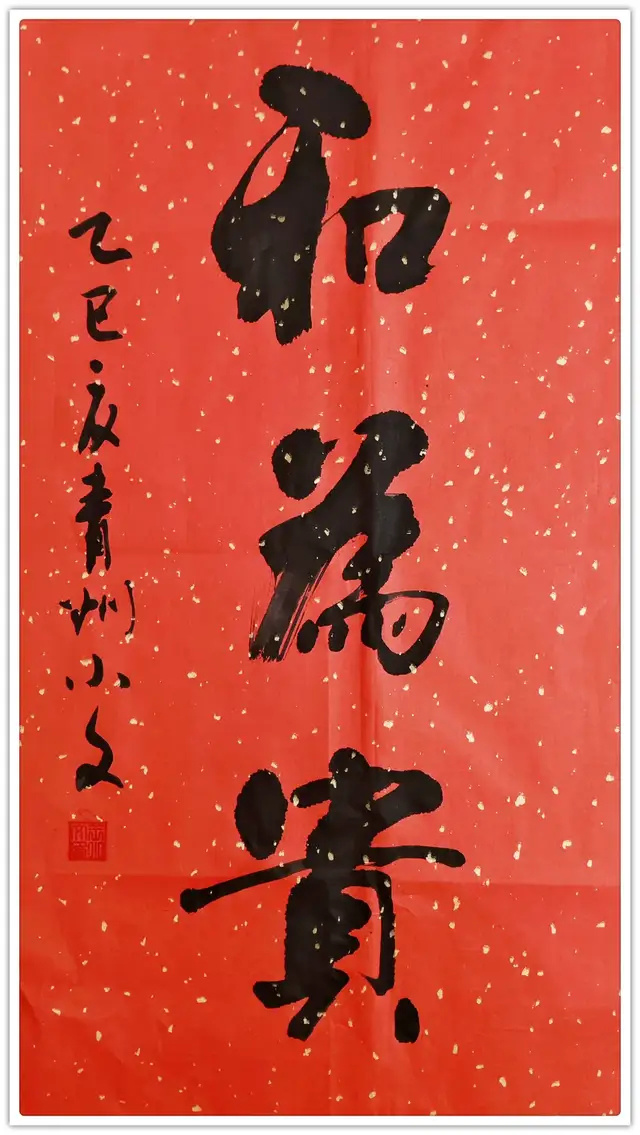 和為貴
乙巳夏青州小文